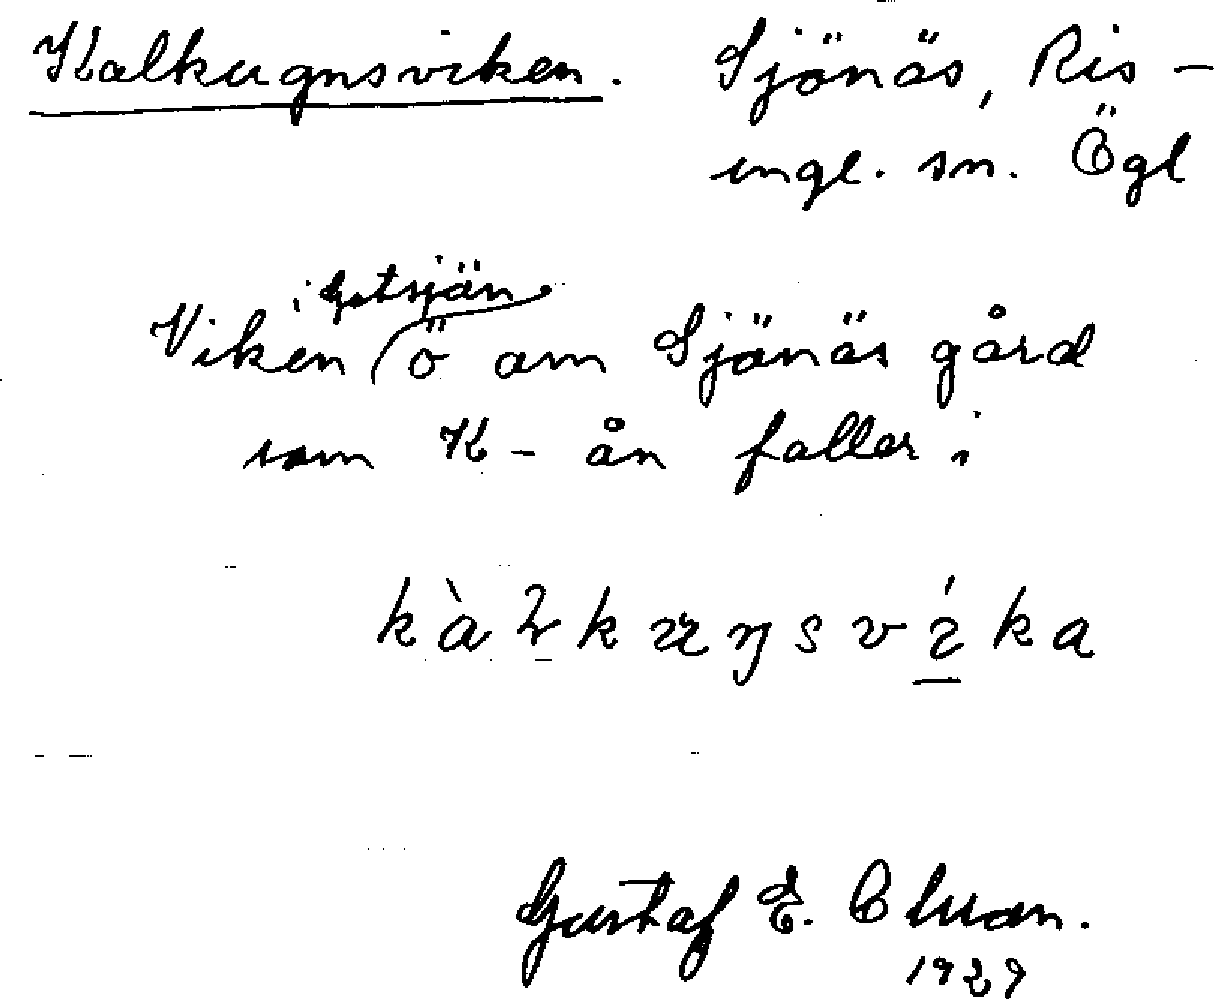 Kalkugnsviken. Sjönäs, Ris-
ingl. sn. Ögl
i Getsjön
Viken ö om Sjönäs gård
som K-ån faller i
kàlkuŋsvíka
Gustaf E.
1929